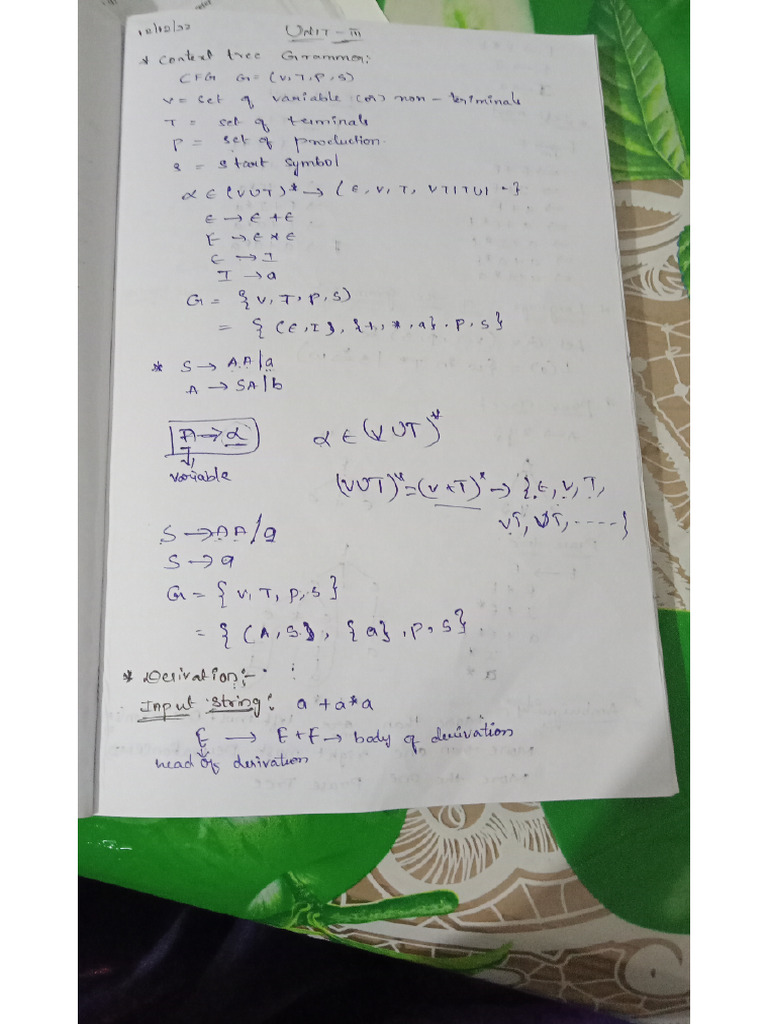 UNIT-III
* Context free Grammer:
CFG G=(V,T,P,S)
V= set of variable (or) non-terminals
T = set of terminals
P = set of production.
S = start symbol
α ∈ (VUT)* → (ε, V, T, VT|TU| ..}
E → E + E
E → E * E
E → I
I → a
G = {V, T, P, S)
= { (E, I}, {+, *, a}, P, S}
* S → AA|a
A → SA|b
A → α α ∈ (VUT)*
variable
(VUT)* = (V+T)* → {ε, V, T,
VT, VT, .....}
S → AA/a
S → a
G = {V, T, P, S}
= { (A, S}, {a}, P, S}
* Derivation:-
Input string: a +a*a
E → E+E → body of derivation
head of derivation